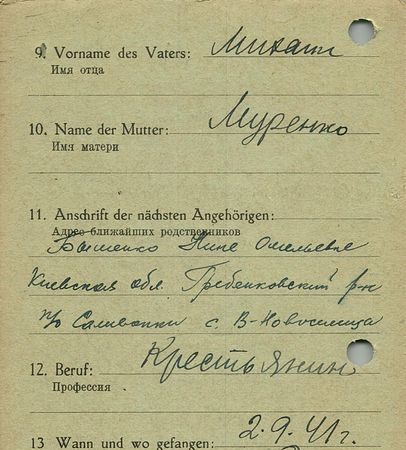 9. Vorname des Vaters: Михаил
Имя отца
10. Name der Mutter: Муренко
Имя матери
11. Anschrift der nächsten Angehörigen:
Адрес ближайших родственников
Нине Омельевне
Киевская обл. Гребенковский р-н
п/о Саливонки с. В-Новоселица
12. Beruf: Крестьянин
Профессия
13 Wann und wo gefangen: 2.9.41г.